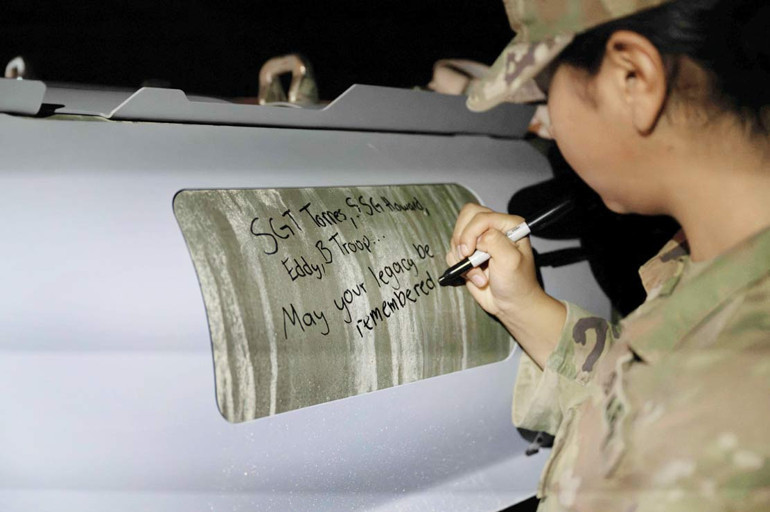 SGT Torres, SSG Howard,
Eddy, B Troop...
May your legacy be
remembered